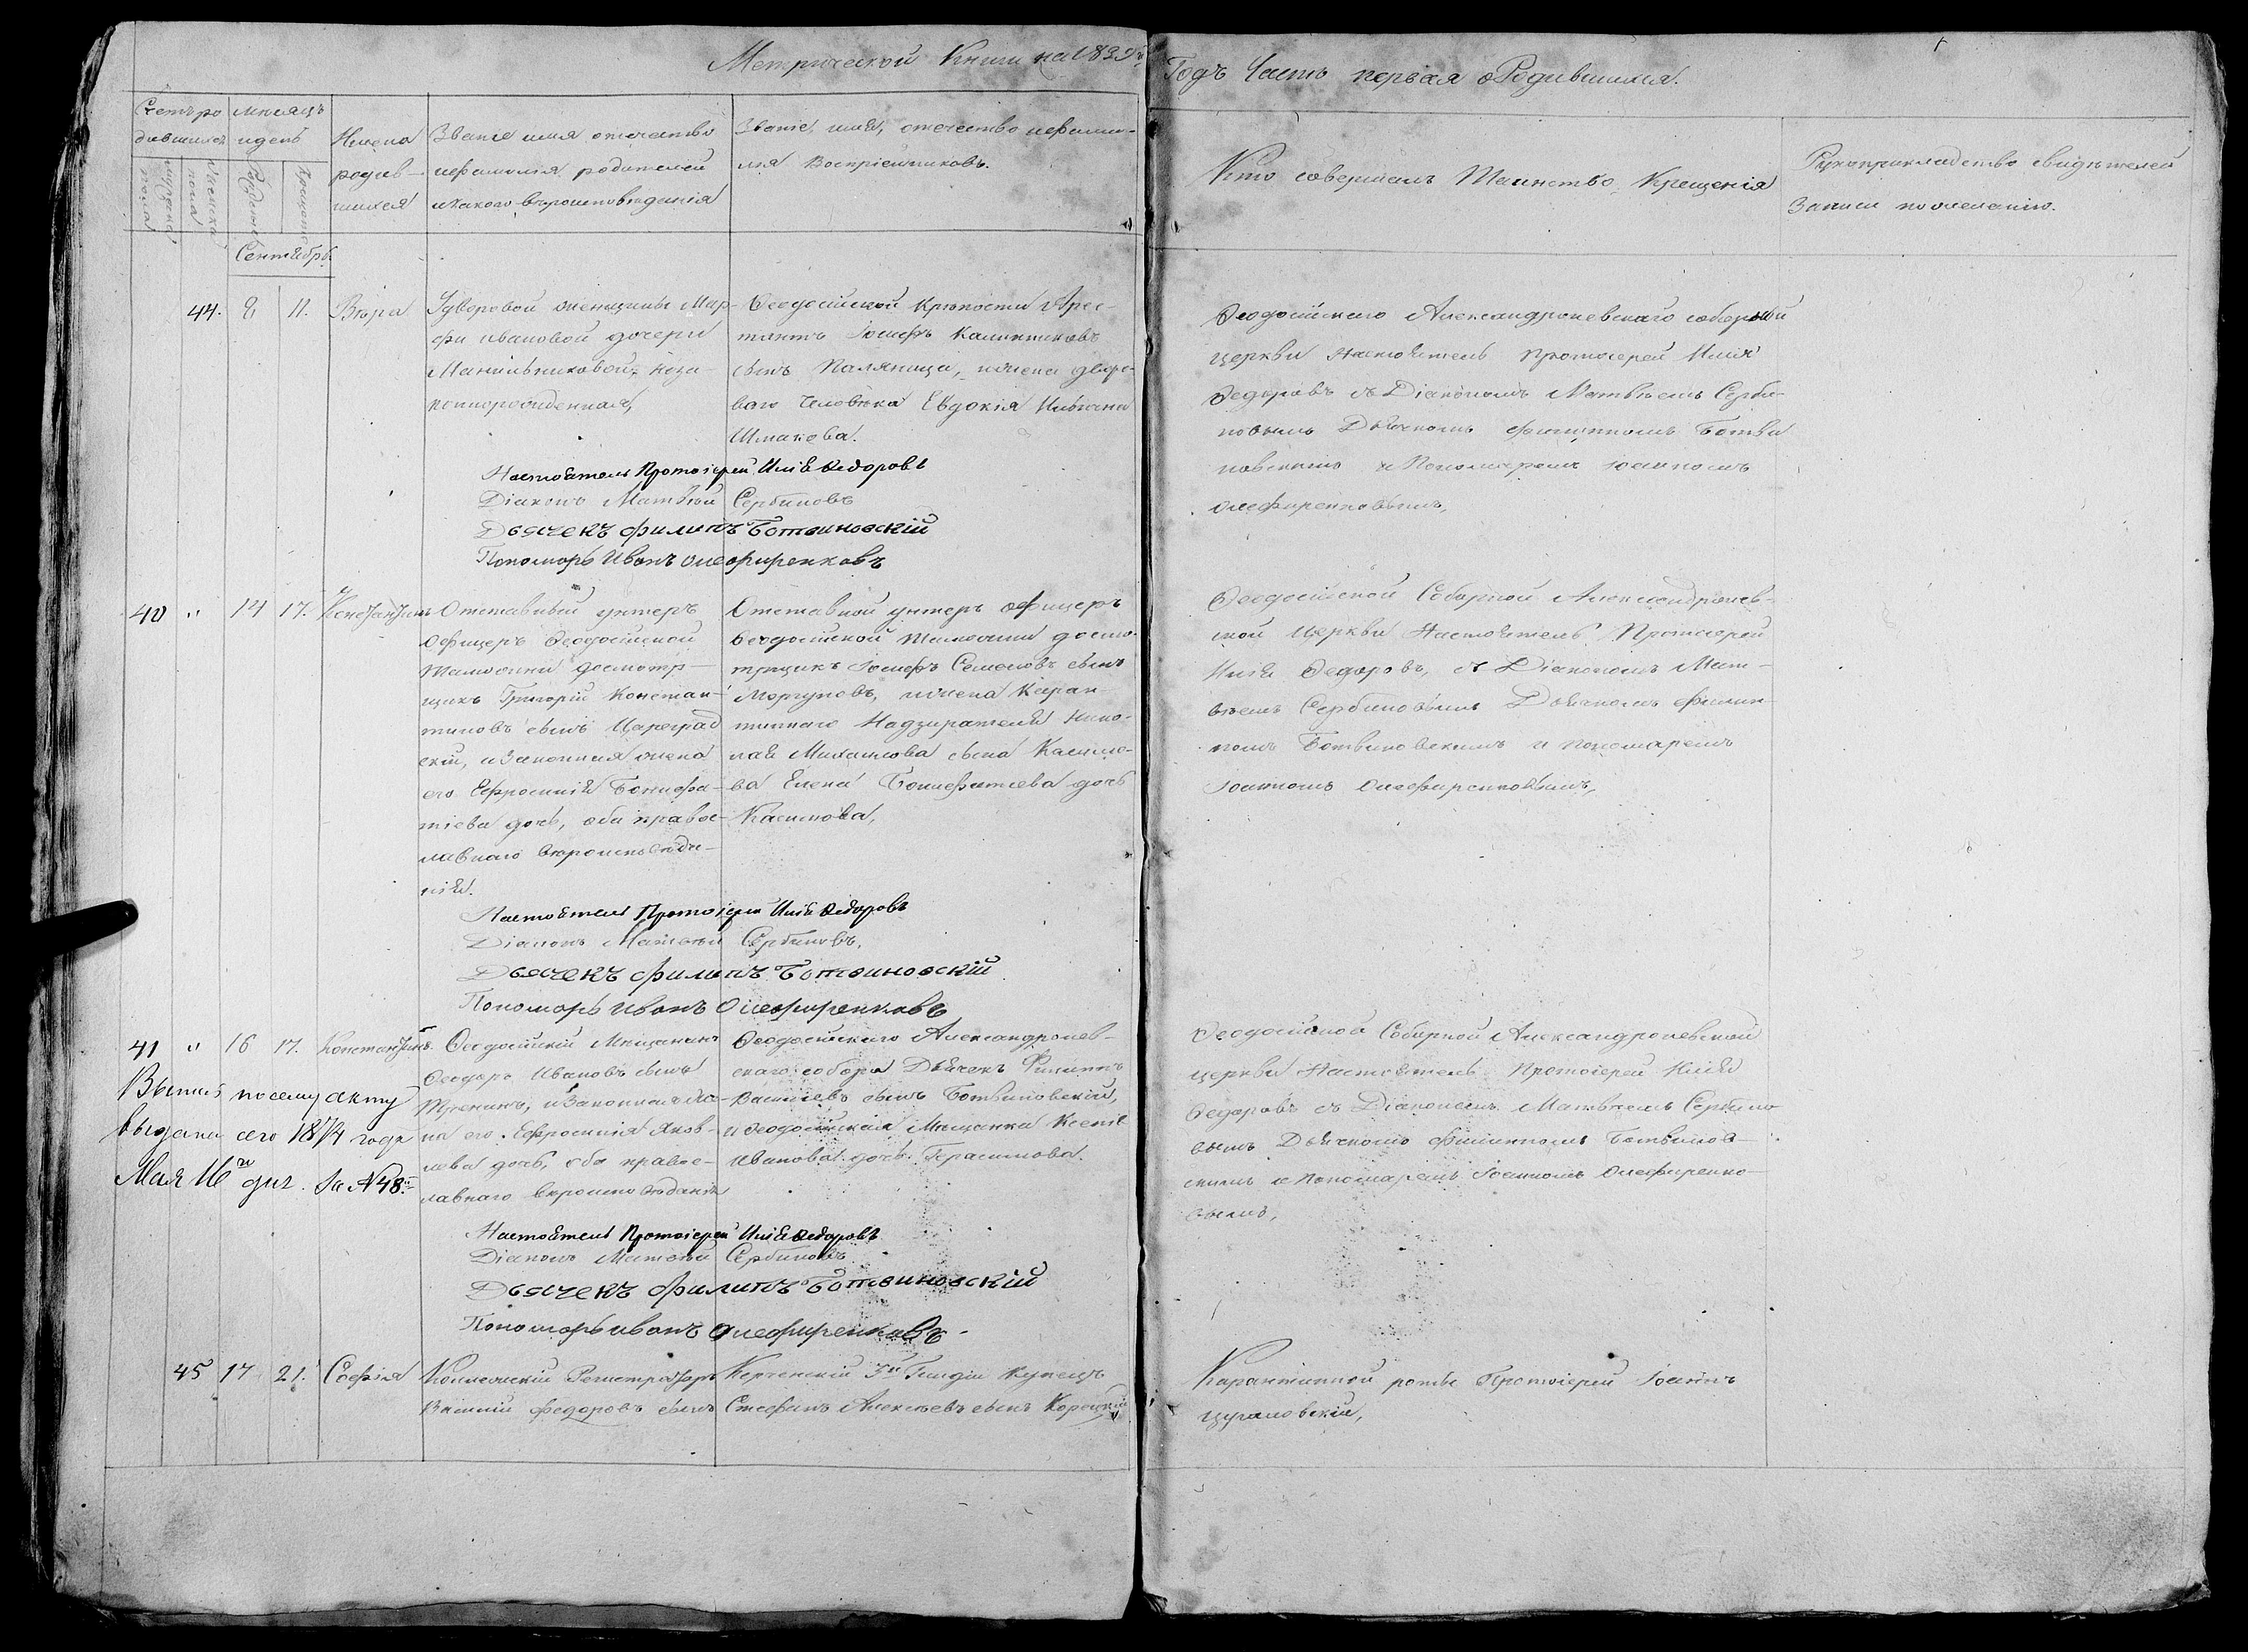 Метрической Книги на 1839й Годъ Часть первая о Родившихся.
Счетъ ро
дившихся
мужеска
пола
женска
пола
месяцъ
и день
Рожденія
Крещенія
Имена
родив-
шихся
Званіе имя отечество
и фамилія родителей
и какого вероисповеданія
Званіе, имя, отечество и фами-
лія Воспріемниковъ.
Кто совершалъ Таинство Крещенія
Рукоприкладство свидетелей
Записи по желанію.
Сентябрь
44. 8 11. Вера
У дворовой женщины Мар-
фы Ивановой дочери
неза-
коннорожденная,
Феодосійской Крепости Арес-
тантъ Іосифъ Калинниковъ
сынъ Паляница, и жена дворо-
ваго человека Евдокія
Шмакова.
Феодосійского Александроневскаго соборной
церкви Настоятель Протоіерей Илія
Федоровъ съ Діакономъ Матвеемъ Серби-
новымъ Дьячкомъ Филиппомъ Ботви
новскимъ и Пономаремъ Іоанномъ
Олефиренковымъ,
Настоятель Протоіерей Илія Федоровъ
Діаконъ Матвей Сербиновъ
Дьячекъ Филипъ Ботвиновскій
Пономарь Иванъ Олефиренковъ
40 " 14 17. Константинъ
Отставный унтеръ
Офицеръ Феодосійской
Таможни досмотр-
щикъ Григорій Констан-
тиновъ сынъ Цареград
скій, и законная жена
его Ефросинія Бонифа-
тіева дочь, оба правос-
лавнаго вероисповеда-
нія.
Отставной унтеръ офицеръ
Феодосійской Таможни досмо-
трщикъ Іосифъ Семеновъ сынъ
Моргуновъ, и жена Каран-
тиннаго Надзирателя Нико-
лая Михайлова сына Касимо-
ва Елена Бонифатіева дочь
Касимова,
Феодосійской Соборной Александронев-
ской Церкви Настоятель Протоіерей
Илія Федоровъ, съ Діакономъ Мат-
веемъ Сербиновымъ Дьячкомъ Филип-
помъ Ботвиновскимъ и пономаремъ
Іоанномъ Олефиренковымъ,
Настоятель Протоіерей Илія Федоровъ
Діаконъ Матвей Сербиновъ,
Дьячекъ Филипъ Ботвиновскій
Пономарь Иванъ Олефиренковъ
41 " 16 17. Константинъ
Феодосійскій Мещанинъ
Феодоръ Ивановъ сынъ
и законная же-
на его Ефросинія Яков-
лева дочь, оба правос-
лавнаго вероисповеданія
Феодосійскаго Александронев-
скаго собора Дьячекъ Филиппъ
Васильевъ сынъ Ботвиновскій,
и Феодосійская Мещанка Ксенія
Иванова дочь Герасимова.
Феодосійской Соборной Александроневской
церкви Настоятель Протоіерей Илія
Федоровъ съ Діакономъ Матвеемъ Сербино
вымъ Дьячкомъ Филиппомъ Ботвинов-
скимъ и Пономаремъ Іоанномъ Олефиренко-
вымъ,
Выпись по сему акту
выдана сего 1874 года
Мая 16го дня. За №48.
Настоятель Протоіерей Илія Федоровъ
Діаконъ Матвей Сербиновъ
Дьячекъ Филипъ Ботвиновскій
Пономарь Иванъ Олефиренковъ
45 17 21. Софія
Коллежскій Регистраторъ
Василій Федоровъ сынъ
Керченскій 3й Гильдіи Купецъ
Стефанъ Алексеевъ сынъ
Карантинной роты Протоіерей Іоаннъ